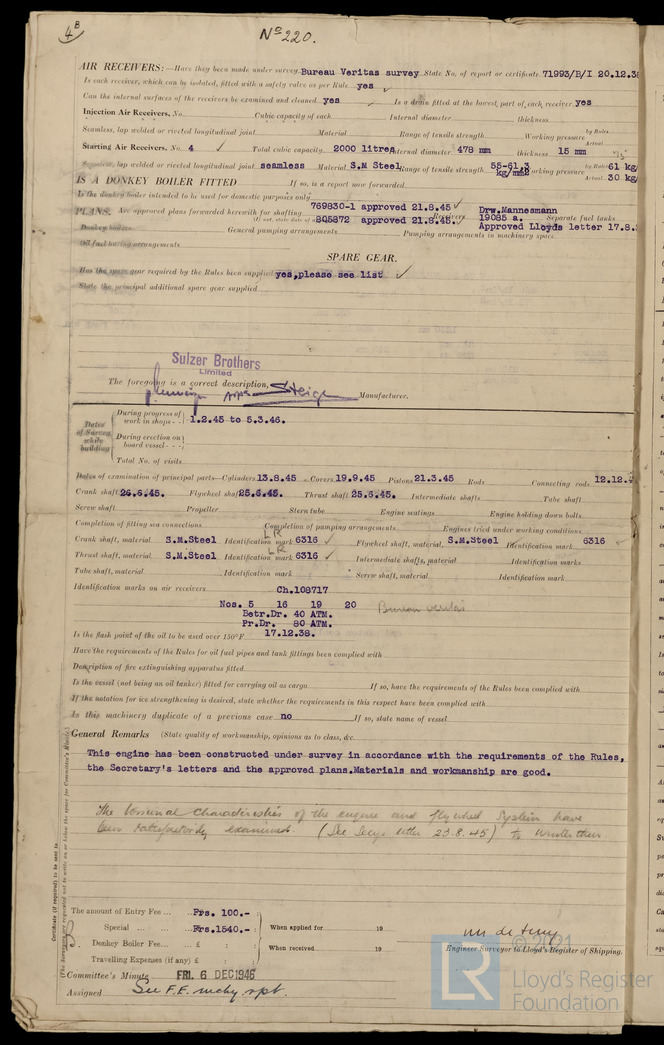 4B
No 220.
AIR RECEIVERS:—Have they been made under survey Bureau Veritas survey State No. of report or certificate 71993/B/I 20.12.3
Is each receiver, which can be isolated, fitted with a safety valve as per Rule yes
Can the internal surfaces of the receivers be examined and cleaned yes Is a drain fitted at the lowest part of each receiver yes
Injection Air Receivers, No. Cubic capacity of each Internal diameter thickness
Seamless, lap welded or riveted longitudinal joint Material Range of tensile strength Working pressure by Rules Actual
Starting Air Receivers, No. 4 Total cubic capacity 2000 litres Internal diameter 478 mm thickness 15 mm
Seamless, lap welded or riveted longitudinal joint seamless Material S.M Steel Range of tensile strength 55-61.3 kg/mm2 Working pressure by Rules 61 kg Actual 30 kg
IS A DONKEY BOILER FITTED If so, is a report now forwarded
Is the donkey boiler intended to be used for domestic purposes only
PLANS. Are approved plans forwarded herewith for shafting 769830-1 approved 21.8.45 Receivers Drw.Mannesmann Separate fuel tanks
If not, state date of 845872 approved 21.8.45. 19085 a.
Donkey boilers General pumping arrangements Pumping arrangements in machinery space Approved Lloyds letter 17.8.
Oil fuel burning arrangements
SPARE GEAR.
Has the spare gear required by the Rules been supplied yes,please see list
State the principal additional spare gear supplied
Sulzer Brothers
Limited
The foregoing is a correct description,
Manufacturer.
Dates of Survey while building
During progress of work in shops - - 1.2.45 to 5.3.46.
During erection on board vessel - - -
Total No. of visits
Dates of examination of principal parts—Cylinders 13.8.45 Covers 19.9.45 Pistons 21.3.45 Rods Connecting rods 12.12.
Crank shaft 26.6.45. Flywheel shaft 25.6.45. Thrust shaft 25.6.45. Intermediate shafts Tube shaft
Screw shaft Propeller Stern tube Engine seatings Engine holding down bolts
Completion of fitting sea connections Completion of pumping arrangements Engines tried under working conditions
Crank shaft, material S.M.Steel Identification mark LR 6316 Flywheel shaft, material S.M.Steel Identification mark 6316
Thrust shaft, material S.M.Steel Identification mark LR 6316 Intermediate shafts, material Identification marks
Tube shaft, material Identification mark Screw shaft, material Identification mark
Identification marks on air receivers Ch.108717
Nos. 5 16 19 20 Bureau Veritas
Betr.Dr. 40 ATM.
Pr.Dr. 80 ATM.
Is the flash point of the oil to be used over 150°F. 17.12.38.
Have the requirements of the Rules for oil fuel pipes and tank fittings been complied with
Description of fire extinguishing apparatus fitted
Is the vessel (not being an oil tanker) fitted for carrying oil as cargo If so, have the requirements of the Rules been complied with
If the notation for ice strengthening is desired, state whether the requirements in this respect have been complied with
Is this machinery duplicate of a previous case no If so, state name of vessel
General Remarks (State quality of workmanship, opinions as to class, &c.
This engine has been constructed under survey in accordance with the requirements of the Rules,
the Secretary's letters and the approved plans.Materials and workmanship are good.
The torsional characteristics of the engine and flywheel system have
been satisfactorily examined (See Secys letter 23.8.45) to
Certificate (if required) to be sent to
(The Surveyors are requested not to write on or below the space for Committee's Minute.)
The amount of Entry Fee ... Frs. 100.-
Special ... ... Frs.1540.- When applied for 19
Donkey Boiler Fee ... £ When received 19
Travelling Expenses (if any) £
Engineer Surveyor to Lloyd's Register of Shipping.
Committee's Minute FRI. 6 DEC 1946
Assigned See F.E. mchy rpt.
© 2021
LR
Lloyd's Register
Foundation